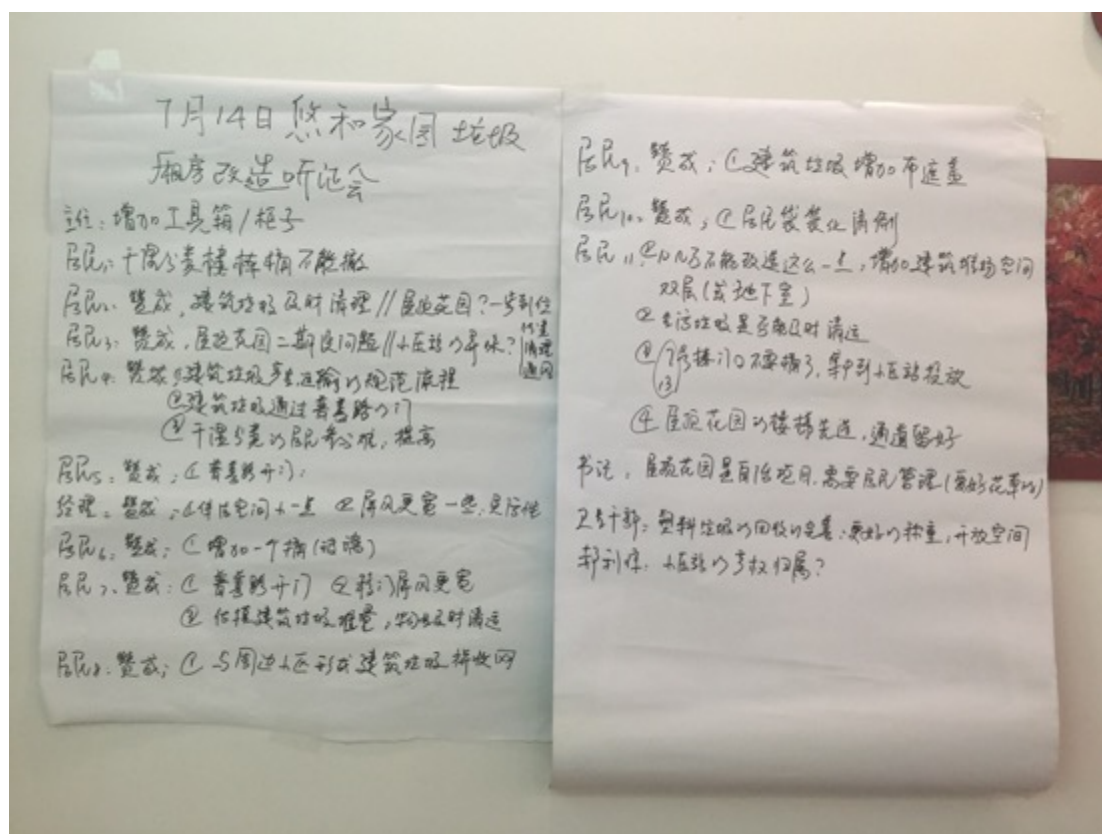 7月14日悠和家园垃圾
厢房改造听证会
主任：增加工具箱/柜子
居民1：干湿分类楼栋桶不能撤
居民2：赞成，建筑垃圾及时清理//屋顶花园？一步到位
居民3：赞成，屋顶花园二期没问题//小压站
居民4：赞成①建筑垃圾运输的规范流程
②建筑垃圾通过普善路的门
③干湿分类的居民参与难，提高
居民5：赞成；①普善路开门；
经理：赞成；①休息空间小一点 ②屏风更宽一些，灵活性
居民6：赞成；①增加一个桶（玻璃）
居民7：赞成：①普善路开门 ②移门屏风更宽
③估摸建筑垃圾堆量，及时清运
居民8：赞成；①与周边小区形成建筑垃圾接收网
居民9：赞成；①建筑垃圾增加布遮盖
居民10：赞成；①居民袋装化清倒
居民11：①不能改造这么一点，增加建筑堆场空间
双层（或地下室）
②垃圾是否能及时清运
③7号楼门口不要桶了，集中到小压站投放
13
④屋顶花园的楼梯先造，通道留好
书记：屋顶花园是自治项目，需要居民管理（爱好花草的）
卫生干部：塑料垃圾的回收的完善；更好的称重，开放空间
小压站的产权归属？